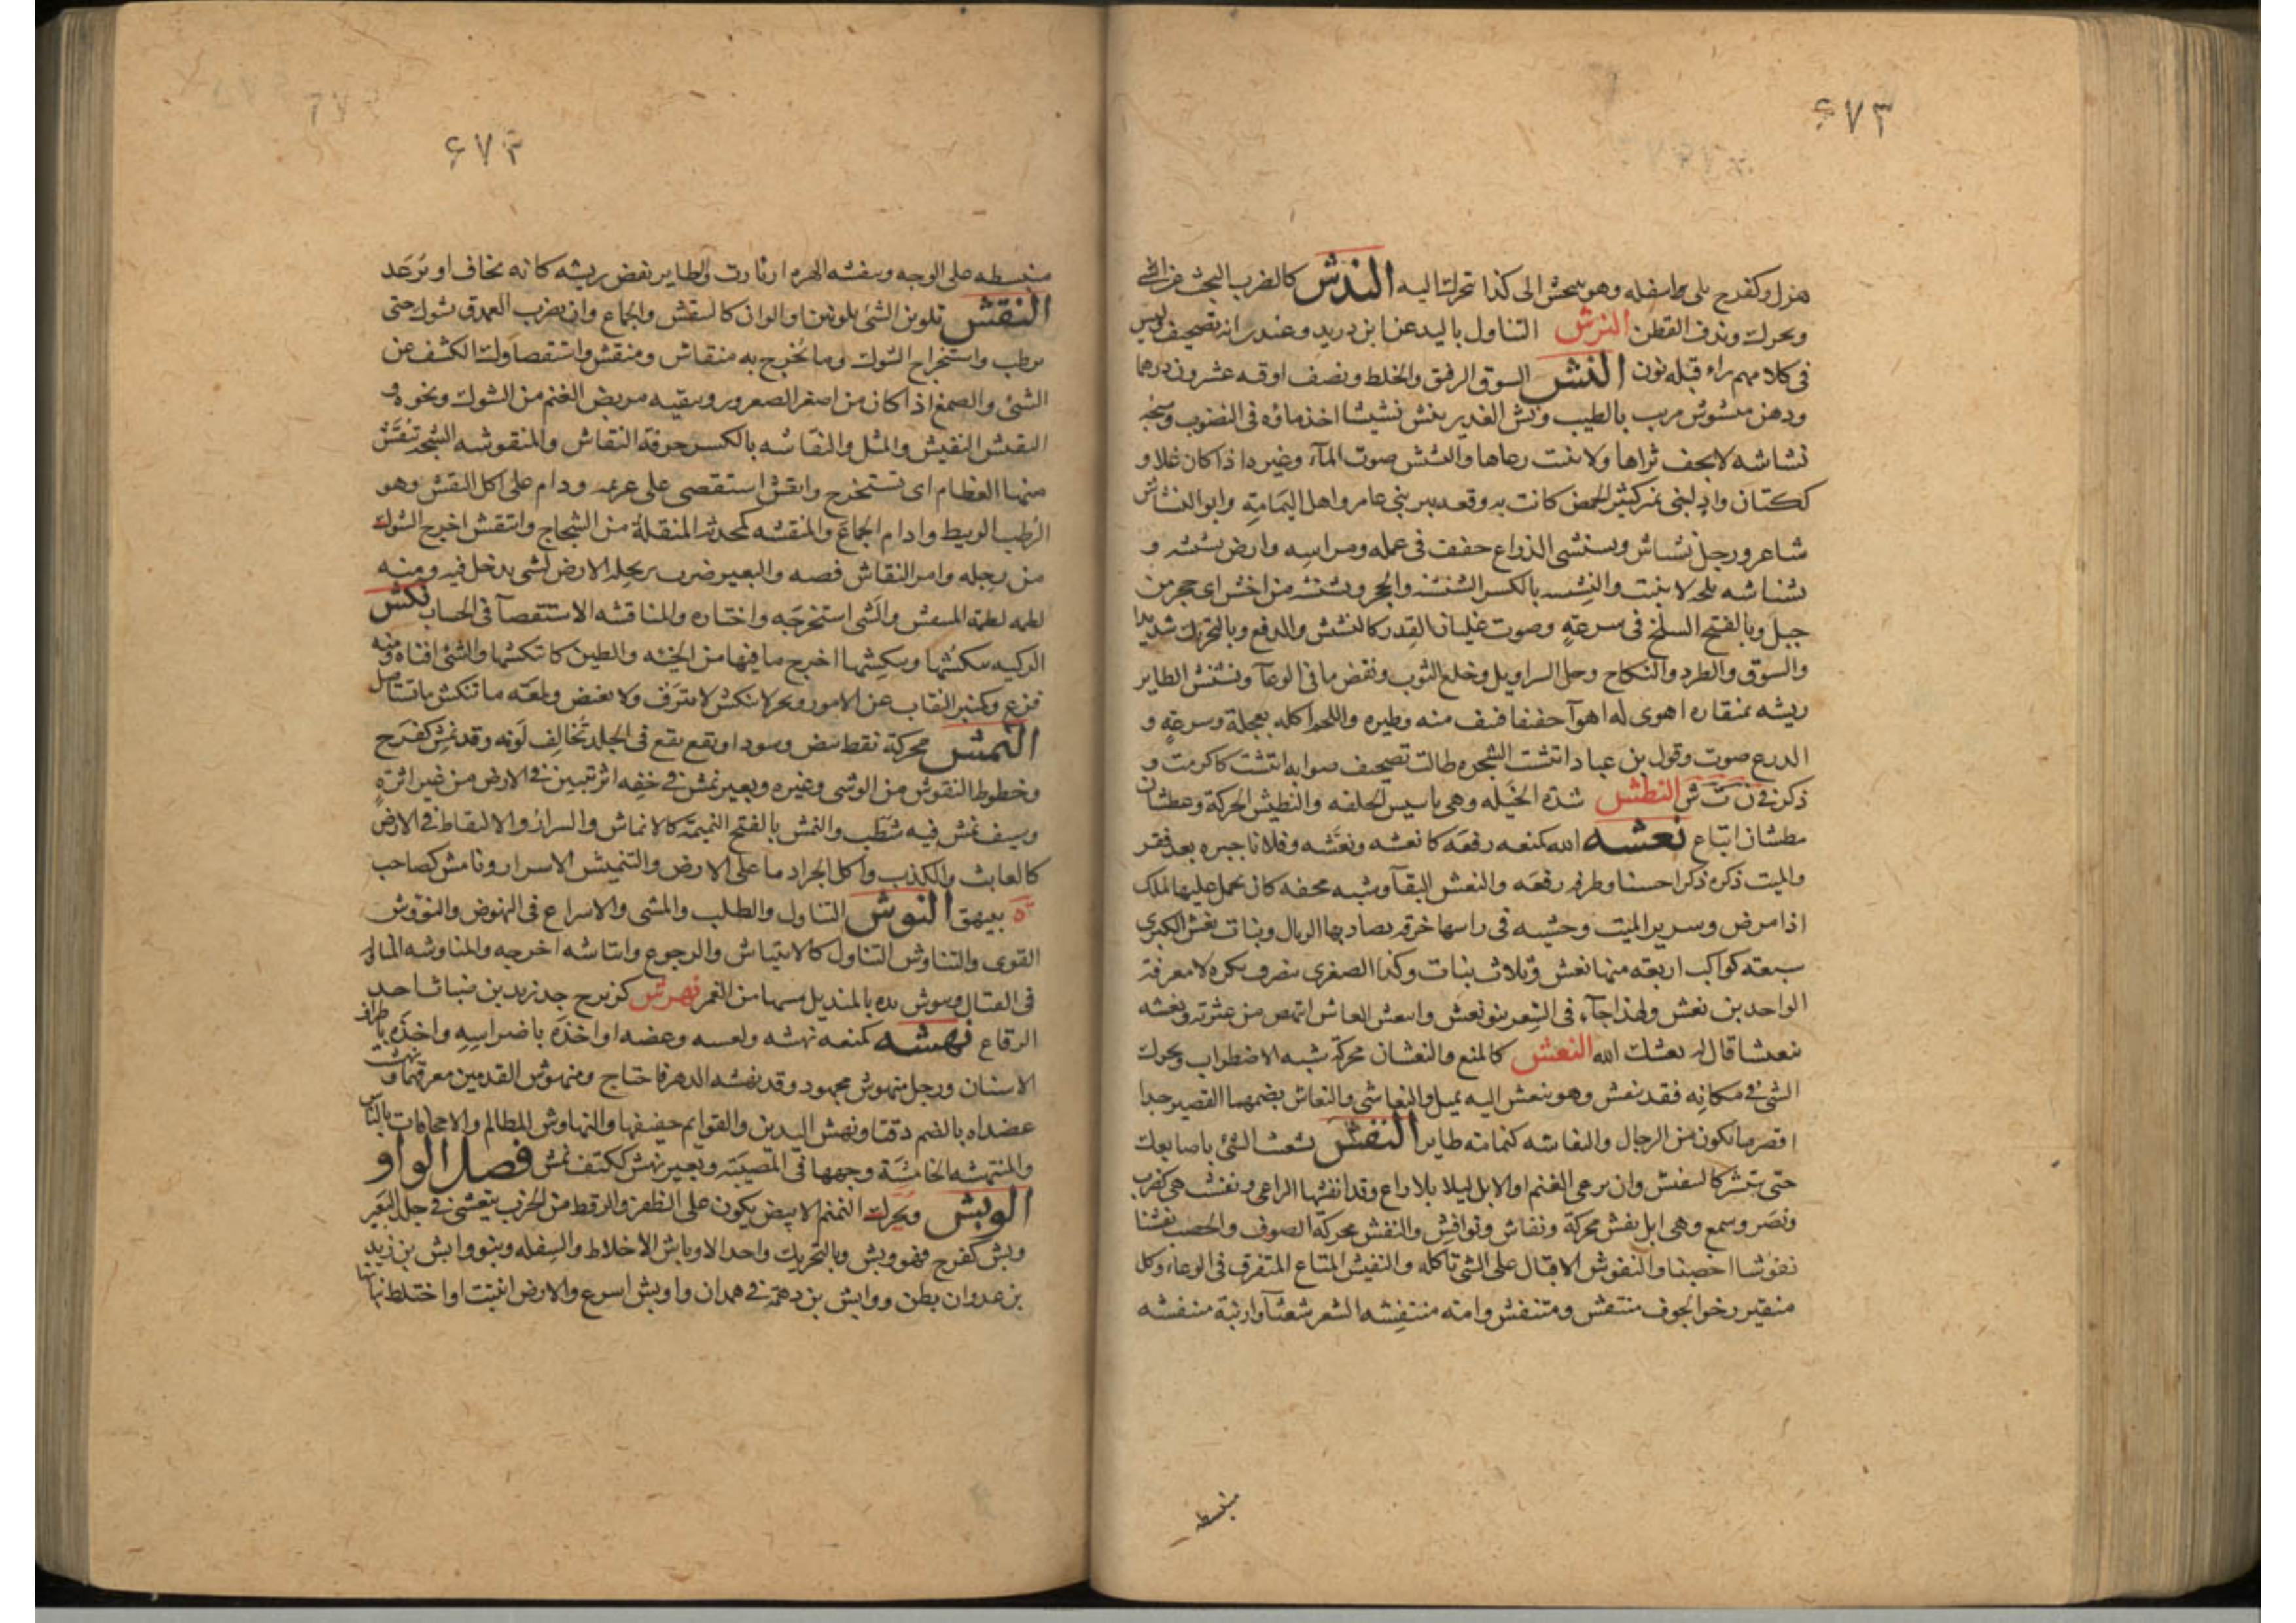 ۶۷۳
هزل وكفرح بلى اسفله وهو ينحش الى كذا تحرك اليه الندش كالضرب البحث عن الشئ
ويحرك وندف القطن النرش التناول باليد عن ابن دريد وعندى انه تصحيف وليس
فى كلامهم راء قبله نون النش السوق الرفق والخلط ونصف اوقيه عشرون درهما
ودهن منشوش مربب بالطيب ونش الغدير ينش نشيشا اخذ ماؤه فى النضوب وسبخه
نشاشه لا يجف ثراها ولا ينبت رعاها والنشيش صوت المآء وغيره اذا كان غلا و
ككتان واد لبنى نمير كثير الحمض كانت به وقعه بين بنى عامر واهل اليمامة وابو النشاش
شاعر ورجل نشاش ونشنشى الذراع خفف فى عمله ومراسه وارض نشنشه و
نشناشه ملحه لا تنبت والنشنشه بالكسر الشنشنه والحجر ونشنشه من اخشن اى حجر من
جبل وبالفتح السلخ فى سرعة وصوت غليان القدر كالنشنش والدفع وبالتحريك شديدا
والسوق والطرد والنكاح وحل السراويل وخلع الثوب ونفض ما فى الوعآ ونشنش الطاير
ريشه بمنقاره اهوى له اهوآ خفيفا فنتف منه وطيره واللحم اكله بعجلة وسرعة و
الدرع صوت وقول بن عباد انتشت الشجره طالت تصحيف صوابه انتشت كاكرمت و
ذكر فى ن ت ش النطش شدة الخيله وهى تاسيس الخلقه والنطيش الحركة وعطشان
مطشان اتباع نعشه الله كمنعه رفعه كانعشه ونعشه وفلانا جبره بعد فقر
والميت ذكره ذكرا حسنا وطرفه رفعه والنعش البقآ وشبه محفه كان يحمل عليها الملك
اذا مرض وسرير الميت وخشبه فى راسها خرقه يصاد بها الريال وبنات نعش الكبرى
سبعة كواكب اربعة منها نعش وثلاث بنات وكذا الصغرى ينصرف نكرة لا معرفة
الواحد بن نعش ولهذا جآء فى الشعر بنو نعش وانتعش العاثر انتهض من عثرته ونعشه
تنعيشا قال له نعشك الله النغش كالمنع والنغشان محركة شبه الاضطراب وتحرك
الشئ فى مكانه فقد نغش وهو ينغش اليه يميل والنغاشى والنغاش بضمهما القصير جدا
اقصر ما يكون من الرجال والنغاشه كثمامه طاير النفش تشعث الشئ باصابعك
حتى ينتشر كالتنفيش وان يرعى الغنم او الابل ليلا بلا راع وقد انفشها الراعى ونفشت هى كضرب
ونصر وسمع وهى ابل نفش محركة ونفاش ونوافش والنفش محركة الصوف والخصب نفشنا
نفوشا اخصبنا والنفوش الاقبال على الشئ تاكله والنفيش المتاع المتفرق فى الوعاء وكل
منتبر رخو الجوف منتفش ومتنفش وامه منتفشه الشعر شعثآ وارنبة منتفشه
منبسطه
۶۷۳
منبسطه على الوجه وتنفشه الهره ازبارت والطاير نفض ريشه كانه يخاف او يرعد
النقش تلوين الشئ بلونين او الوان كالتنقيش والجماع وان يضرب العذق بشوك حتى
يرطب واستخراج الشوك وما يخرج به منقاش ومنقش واستقصاوك الكشف عن
الشئ والصمغ اذا كان من اصغر الصعرور وتنقيه مربض الغنم من الشوك ونحوه و
النقيش النفيش والمثل والنقاشه بالكسر حرفة النقاش والمنقوشه الشجة تنقش
منها العظام اى تستخرج وانقش استقصى على غريمه ودام على اكل النقش وهو
الرطب الربيط وادام الجماع والمنقشه كمحدثه المنقلة من الشجاج وانتقش اخرج الشوك
من رجله وامر النقاش فصه والبعير ضرب برجله الارض لشئ يدخل فيه ومنه
لطمه لطمة المنتقش والشئ استخرجه واختاره والمناقشه الاستقصآ فى الحساب نكش
الركيه ينكشها وينكشها اخرج ما فيها من الجيئه والطين كانتكشها والشئ افناه ومنه
فرغ وكمنبر النقاب عن الامور وبحر لا ينكش لا ينزف ولا يغيض ولمعه ما تنكش ما تستاصل
النمش محركة نقط بيض وسود او بقع تقع فى الجلد تخالف لونه وقد نمش كفرح
وخطوط النقوش من الوشى وغيره وبعير نمش فى خفه اثر تبين فى الارض من غير اثرة
وسيف نمش فيه شطب والنمش بالفتح النميمة كالانماش والسرار والالتقاط فى الارض
كالعابث والكذب واكل الجراد ما على الارض والتنميش الاسرار ونامش كصاحب
ة بيهق النوش التناول والطلب والمشى والاسراع فى النهوض والنووش
القوى والتناوش التناول كالانتياش والرجوع وانتاشه اخرجه والمناوشه المناوله
فى القتال ونوش يده بالمنديل مسها من الغمر نهرش كزبرج جد زيد بن ضباث احد
الرقاع نهشه كمنعه نهسه ولسعه وعضه او اخذه باضراسه واخذه باطراف
الاسنان ورجل منهوش مجهود وقد نهشه الدهر فاحتاج ومنهوش القدمين معرقهما ونهشت
عضداه بالضم دقتا ونهش اليدين والقوايم خفيفها والنهاوش المظالم والاجحافات بالناس
والمنتهشه الخامشة وجهها فى المصيبة وبعير نهش ككتف نمش فصل الواو
الوبش ويحرك النمنم الابيض يكون على الظفر والرقط من الجرب يتفشى فى جلد البعير
وبش كفرح فهو وبش وبالتحريك واحد الاوباش الاخلاط والسفله وبنو وابش بن زيد
بن عدوان بطن ووابش بن دهمة فى همدان واوبش اسرع والارض انبتت او اختلط نباتها